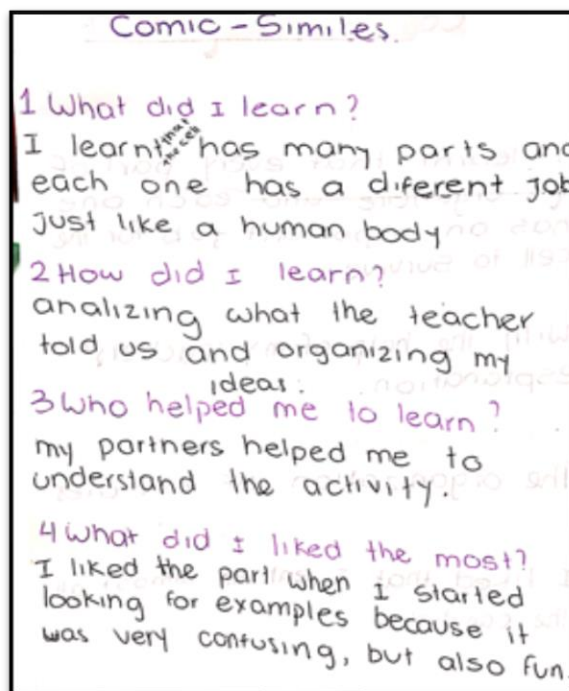 Comic - Similes.
1 What did I learn?
I learnt that the cell has many parts and
each one has a diferent job
just like a human body
2 How did I learn?
analizing what the teacher
told us and organizing my
ideas.
3 Who helped me to learn?
my partners helped me to
understand the activity.
4 What did I liked the most?
I liked the part when I started
looking for examples because it
was very confusing, but also fun.